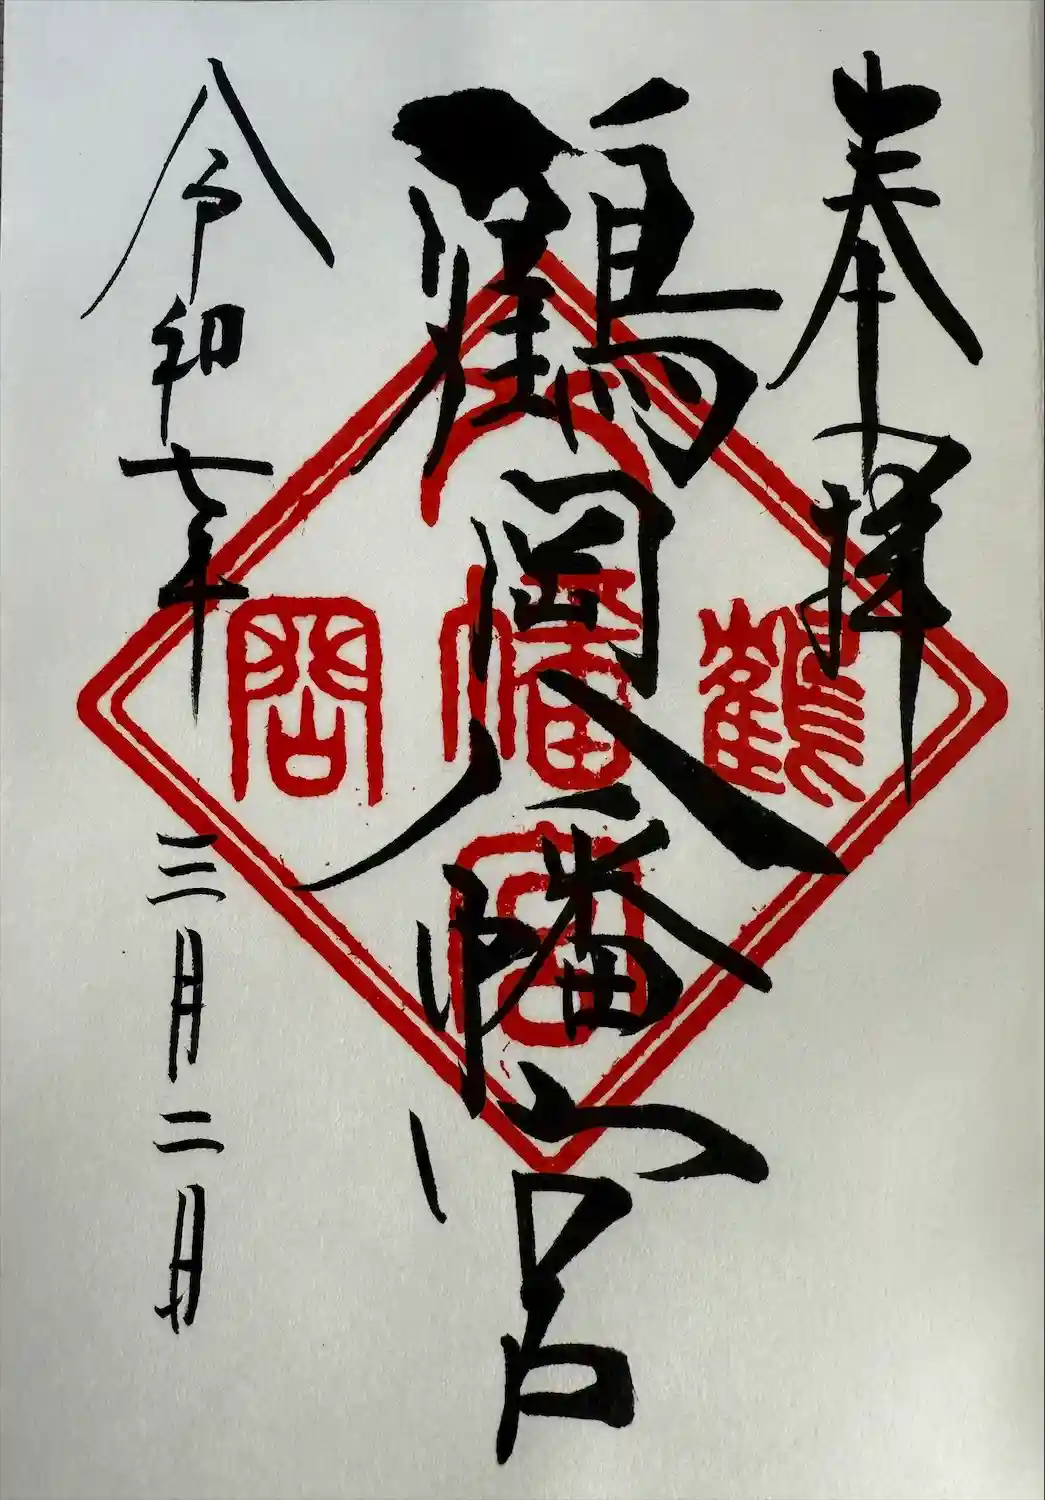 奉拝
鶴岡八幡宮
令和七年
三月二日
鶴
八幡
岡
宮